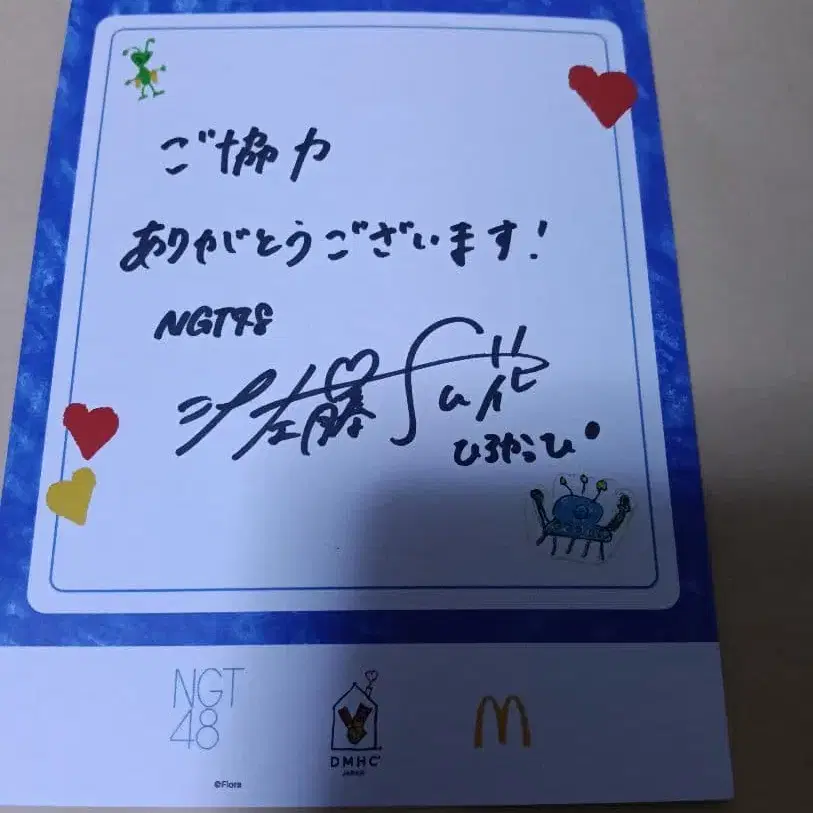 ご協力
ありがとうございます!
NGT48
佐藤
ひろかっぴ
NGT
48
DMHC
JAPAN
©Flora